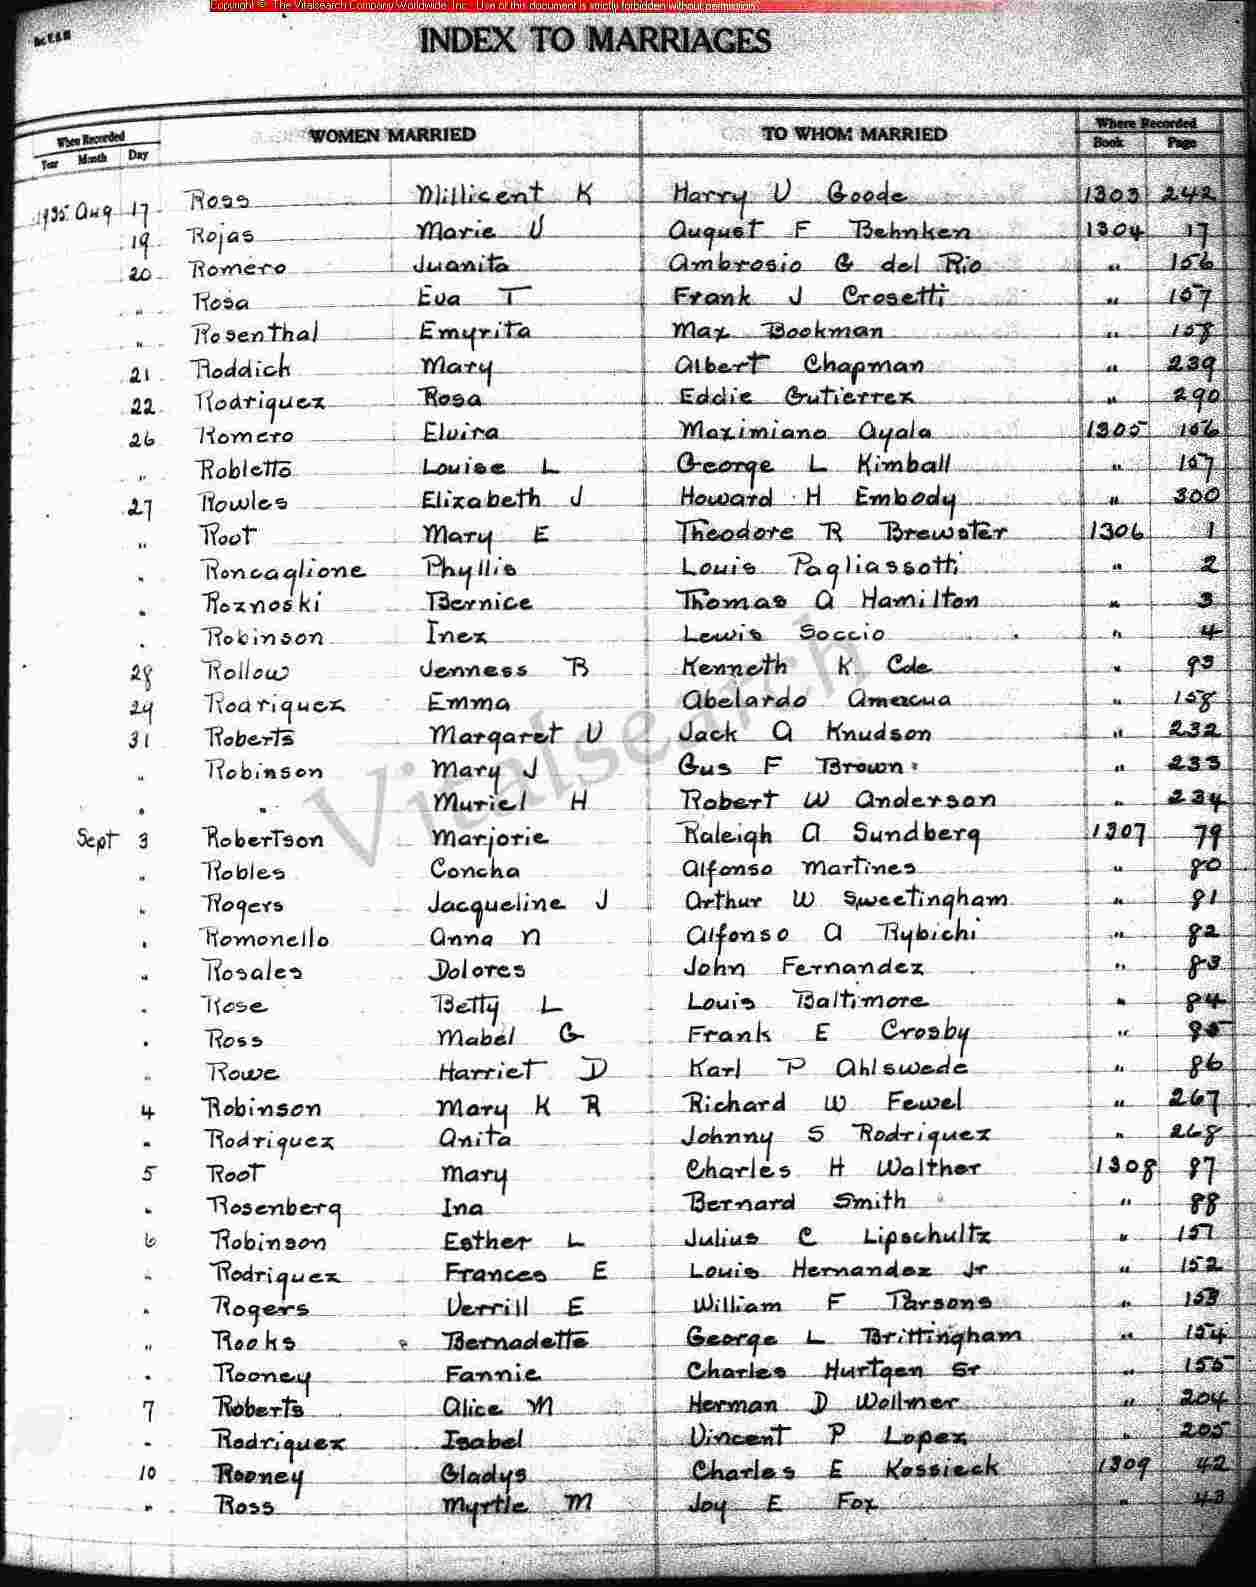 Copyright © The Vitalsearch Company Worldwide, Inc. Use of this document is strictly forbidden without permission.
INDEX TO MARRIAGES
When Recorded WOMEN MARRIED TO WHOM MARRIED Where Recorded
Year Month Day Book Page
1935 Aug 17 Ross Millicent K Harry V Goode 1303 242
19 Rojas Marie V August F Behnken 1304 17
20 Romero Juanita Ambrosio G del Rio " 156
" Rosa Eva T Frank J Crosetti " 157
" Rosenthal Emyrita Max Bookman " 158
21 Roddich Mary Albert Chapman " 239
22 Rodriquez Rosa Eddie Gutierrez " 290
26 Romero Elvira Maximiano Ayala 1305 156
" Robletto Louise L George L Kimball " 157
27 Rowles Elizabeth J Howard H Embody " 300
" Root Mary E Theodore R Brewster 1306 1
" Roncaglione Phyllis Louis Pagliassotti " 2
" Roznoski Bernice Thomas A Hamilton " 3
" Robinson Inez Lewis Soccio " 4
28 Rollow Jenness B Kenneth K Cole " 93
29 Rodriquez Emma Abelardo " 158
31 Roberts Margaret V Jack A Knudson " 232
" Robinson Mary J Gus F Brown " 233
" " Muriel H Robert W Anderson " 234
Sept 3 Robertson Marjorie Raleigh A Sundberg 1307 79
" Robles Concha Alfonso Martines " 80
" Rogers Jacqueline J Arthur W Sweetingham " 81
" Romonello Anna N Alfonso A Rybichi " 82
" Rosales Dolores John Fernandez " 83
" Rose Betty L Louis Baltimore " 84
" Ross Mabel G Frank E Crosby " 85
" Rowe Harriet D Karl P Ahlswede " 86
4 Robinson Mary K R Richard W Fewel " 267
" Rodriquez Anita Johnny S Rodriquez " 268
5 Root Mary Charles H Walther 1308 87
" Rosenberg Ina Bernard Smith " 88
6 Robinson Esther L Julius C Lipschultz " 151
" Rodriquez Frances E Louis Hernandez Jr " 152
" Rogers Verrill E William F Parsons " 153
" Rooks Bernadette George L Brittingham " 154
" Rooney Fannie Charles Hurtgen Sr " 155
7 Roberts Alice M Herman D Wollmer " 204
" Rodriquez Isabel Vincent P Lopez " 205
10 Rooney Gladys Charles E Kossieck 1309 42
" Ross Myrtle M Joy E Fox " 43
Vitalsearch